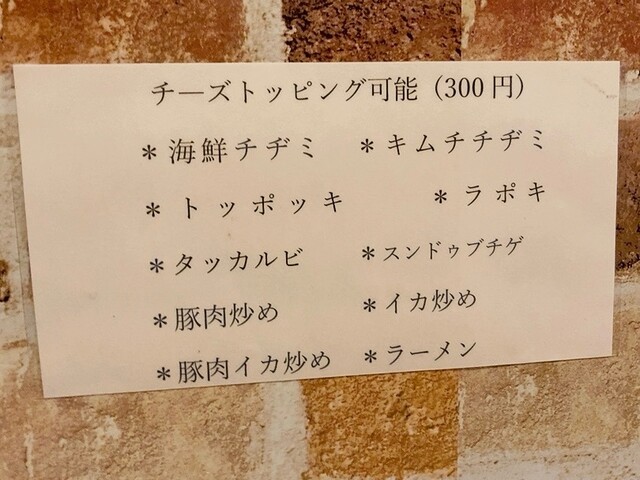 チーズトッピング可能（300円）
＊海鮮チヂミ ＊キムチチヂミ
＊トッポッキ ＊ラポキ
＊タッカルビ ＊スンドゥブチゲ
＊豚肉炒め ＊イカ炒め
＊豚肉イカ炒め ＊ラーメン